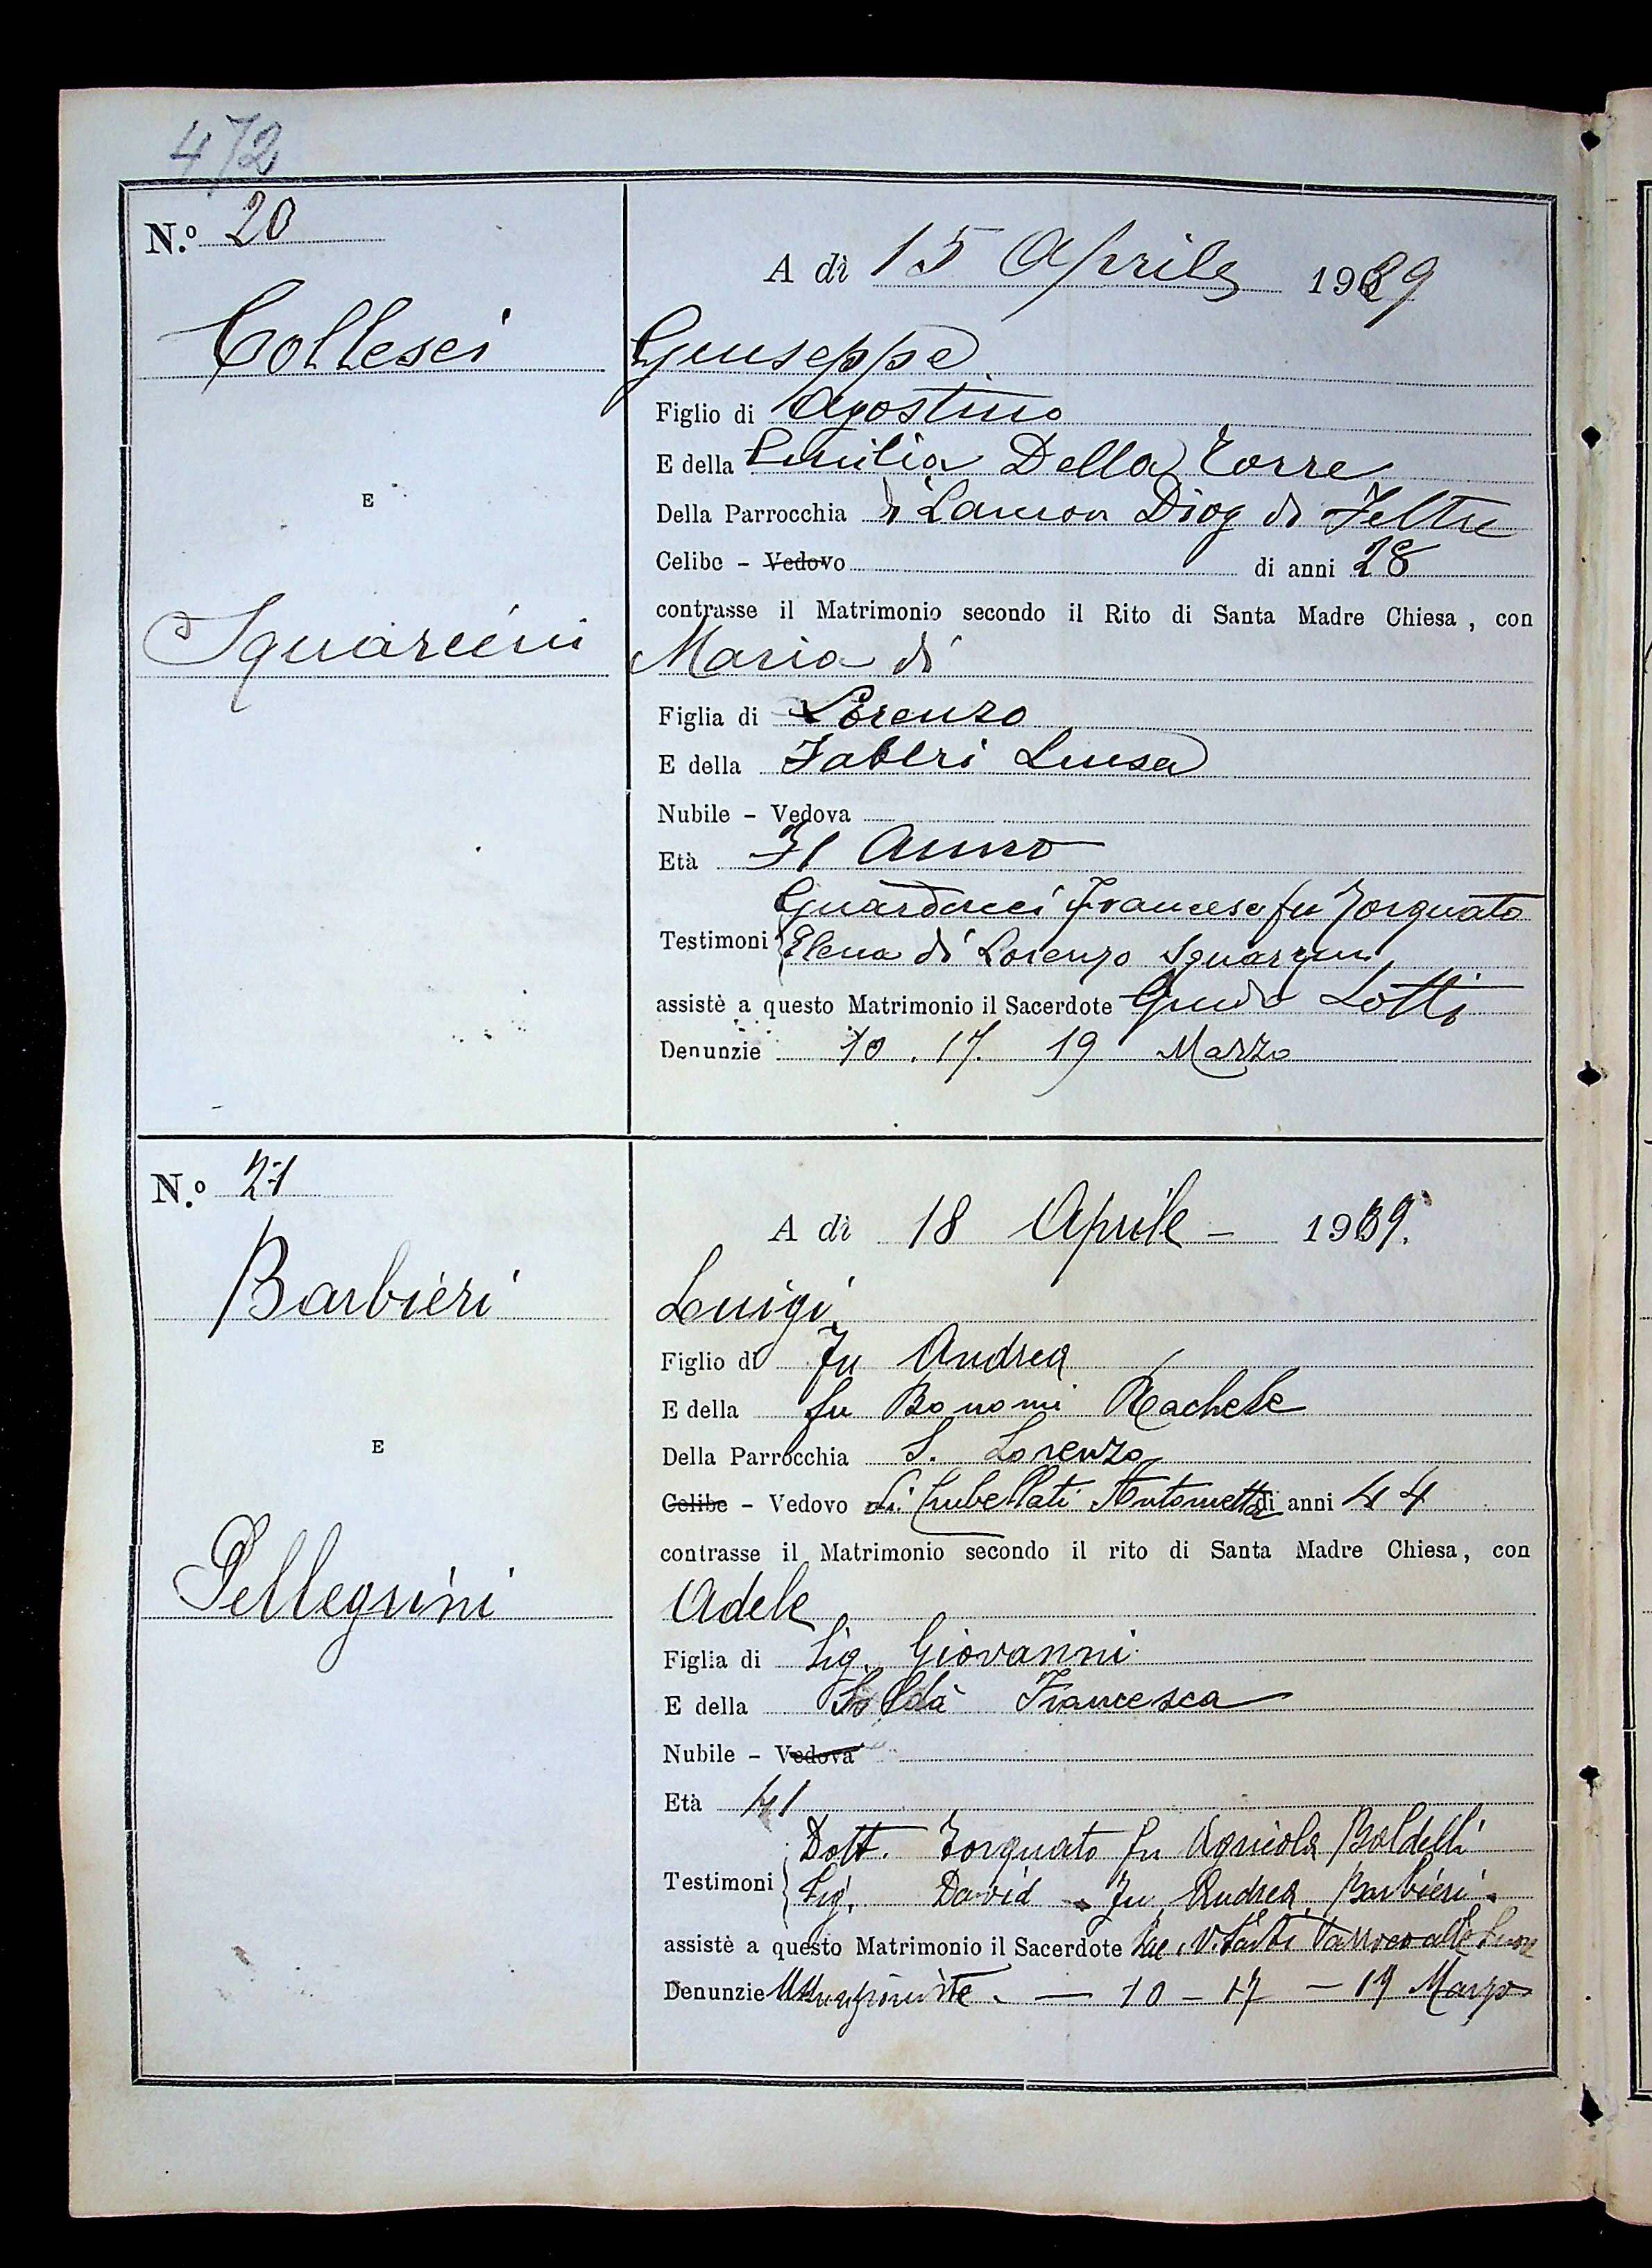 472
N.º 20
A dì 15 Aprile 1929
Collesei
Giuseppe
Figlio di Agostino
E della Emilia Della Torre
E
Della Parrocchia di Lamon Dioc di Feltre
Celibe - Vedovo di anni 28
contrasse il Matrimonio secondo il Rito di Santa Madre Chiesa, con
Squarcini
Maria di
Figlia di Lorenzo
E della Fabbri Luisa
Nubile - Vedova
Età 31 Anno
Guarducci Francesc fu Torquato
Testimoni Elena di Lorenzo Squarzini
assistè a questo Matrimonio il Sacerdote Guido Lotti
Denunzie 10. 17. 19 Marzo
N.º 21
A dì 18 Aprile - 1939.
Barbieri
Luigi
Figlio di fu Andrea
E della fu Bonomi Rachele
E
Della Parrocchia S. Lorenzo
Celibe - Vedovo di Antonietta di anni 44
contrasse il Matrimonio secondo il rito di Santa Madre Chiesa, con
Pellegrini
Adele
Figlia di Sig. Giovanni
E della Soldà Francesca
Nubile - Vedova
Età 41
Dott. Torquato fu Agricola Baldelli
Testimoni Sig. David fu Andrea Barbieri
assistè a questo Matrimonio il Sacerdote Sac. V. Parroco
Denunzie - 10 - 17 - 19 Marzo